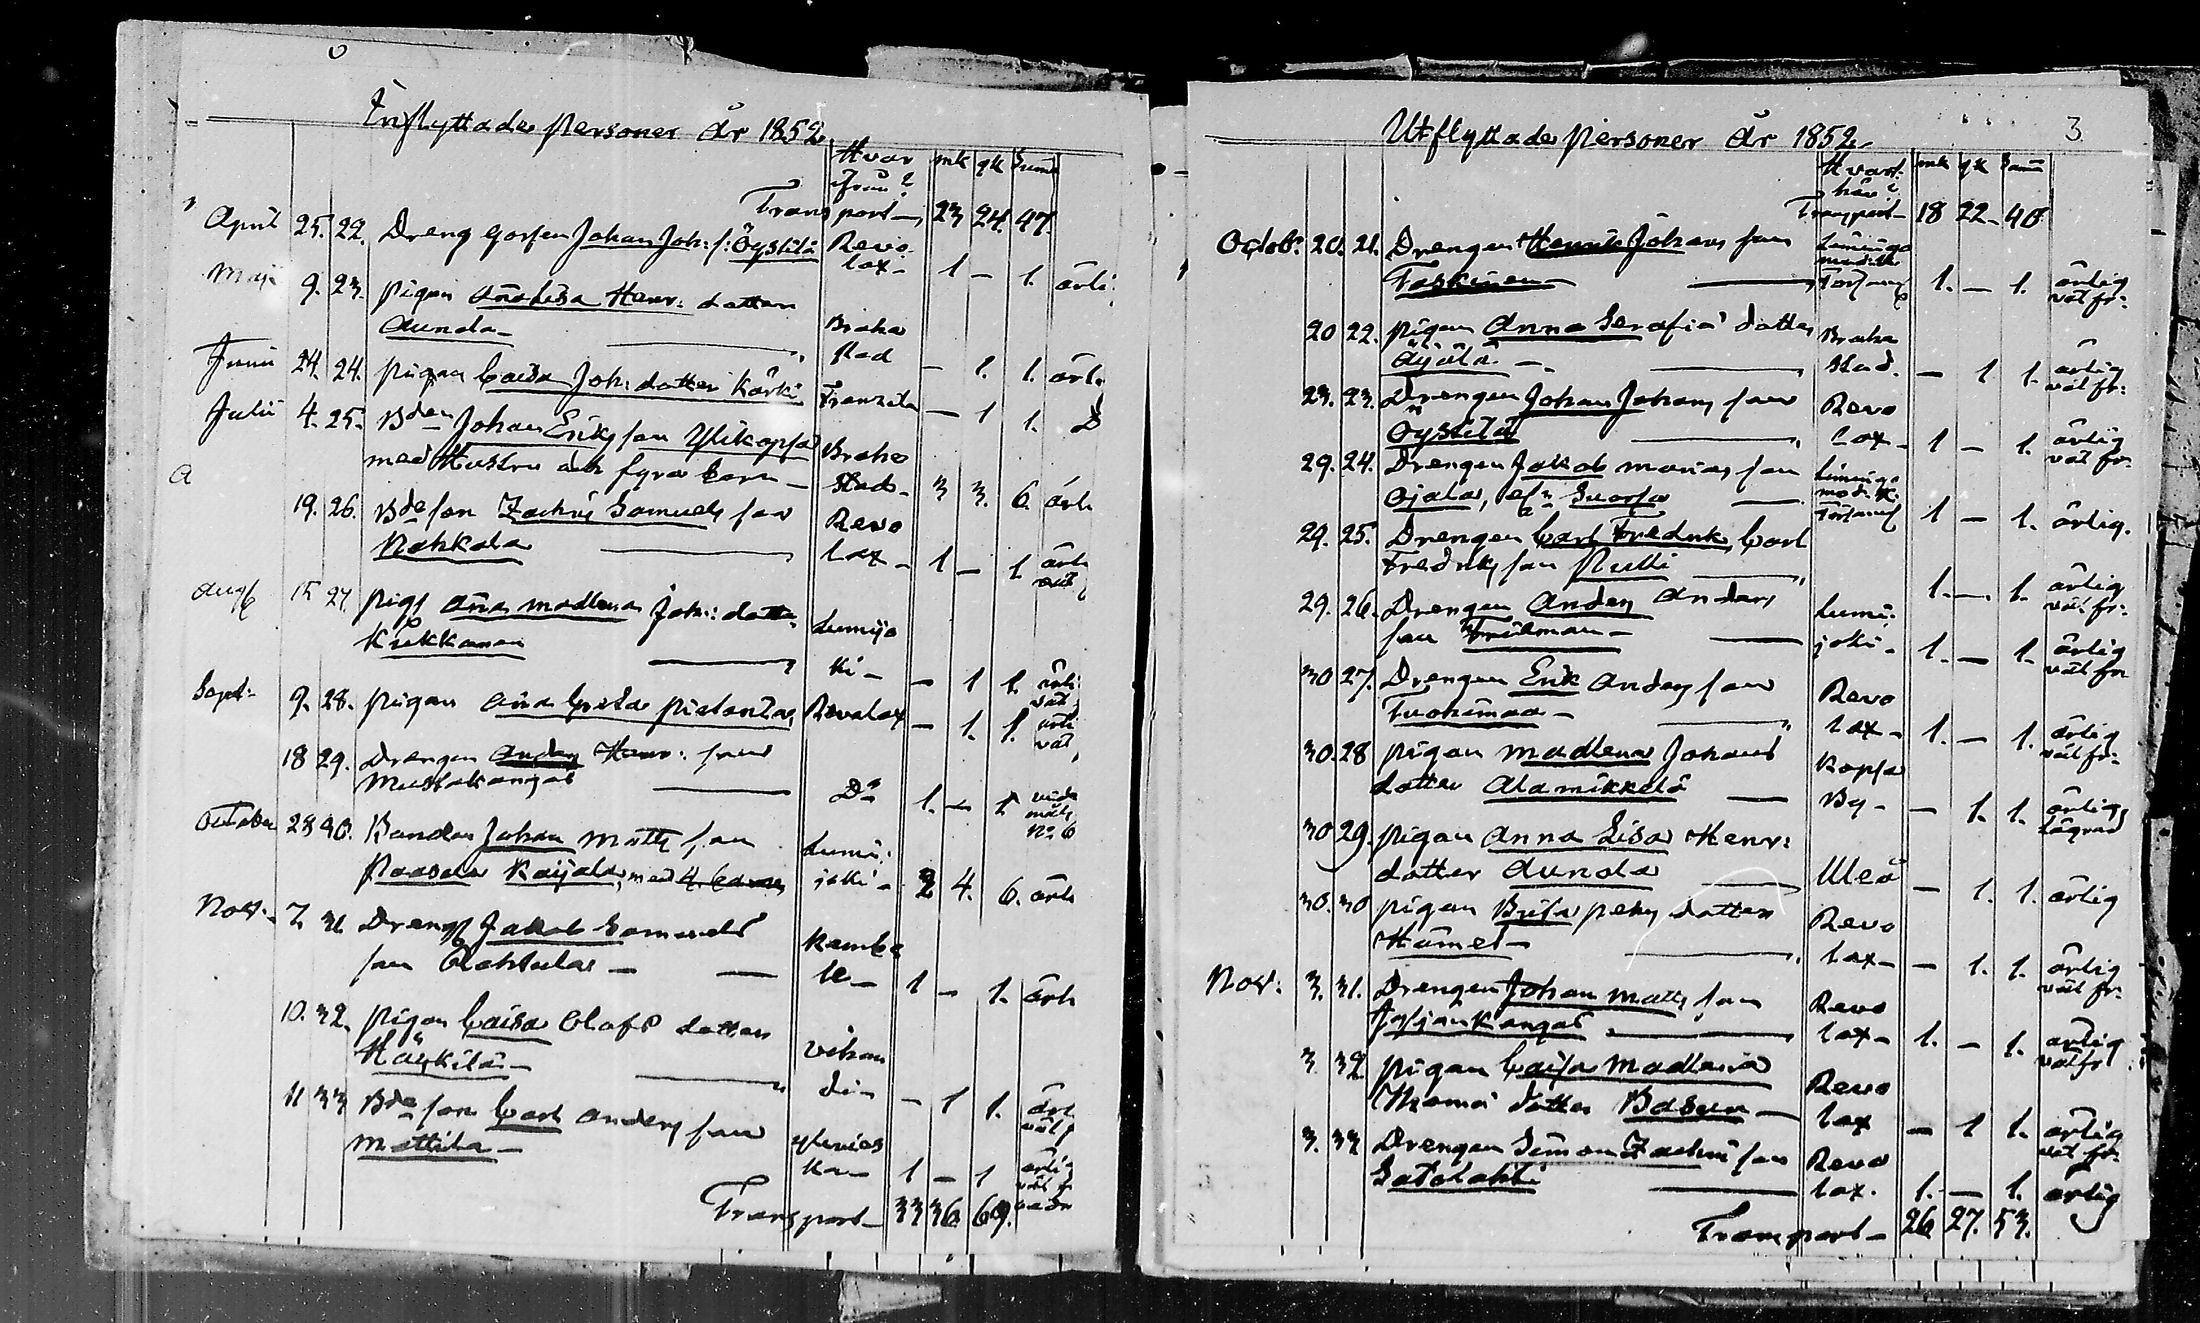 Inflyttade Personer År 1852
Hvar ifrån? mk qk Sum̄
Transport 23 24 47
April 25. 22. Dreng gossen Johan Joh: s: Öystilä Revo lax - 1 - 1. ärli
Maji 9. 23. Pigan Añalisa Henr: dotter
Aunola - Brahe stad - 1. 1. ärl.
Junii 24. 24. Pigan Caisa Joh: dotter Kärki Frantzila - 1 1. D
Julii 4. 25. Bden Johan Eriks son Ylikopsa
med Hustru och fyra barn - Brahe Stad - 3 3. 6. ärli
19. 26. Bde son Zachris Samuels son
Nahkala Revo lax - 1 - 1 ärli väl
Aug 15 27. Pig Aña Madlena Joh: dotter
Kukkanen Lumijo ki - - 1 1. ärli väl
Sept: 9. 28. Pigan Aña Greta Pietarila Revolax - 1. 1. ärli väl
18 29. Drengen Anders Henr: son
Mustakangas Do 1. - 1 vide No 6
October 28 30. Bonden Johan Matts son
Paasala Raijala, med 4 barn, Lumi: joki - 2 4. 6. ärli
Nov: 7 31 Dreng Jakob Samuels
son Rahkala - Kembe le - 1 - 1. ärli
10. 32. Pigan Caisa Olofs dotter
Häykilä - Vihan di - - 1 1. ärl väl f
11 33 Bde son Carl Anders son
Mattila - Ylivies ka - 1 - 1 ärlig väl fr
Transport - 33 36 69.
Utflyttade Personer År 1852. 3
Hvart hän? mk qk Sum̄
Transport - 18 22 - 40
Octob: 20. 21. Drengen Henrik Johans son
Toskinen Limingo 1. - 1. ärlig väl fr:
20 22. Pigan Anna Serafia dotter
Äijälä - Brahe stad. - 1 1. ärlig väl fr:
23. 23. Drengen Johan Johans son
Öystilä Revo lax - 1 - 1. ärlig väl fr
29. 24. Drengen Jakob Marias son
Ojala, Limingo 1 - 1. ärlig.
29. 25. Drengen Carl Fredrik Carl
Fredriks son Rulli 1. - 1. ärlig väl fr:
29. 26. Drengen Anders Anders
son Friiman - Lumi: joki - 1. - 1. ärlig väl fr
30 27. Drengen Erik Anders son
Tuohimaa - Revo lax - 1. - 1. ärlig väl fr:
30. 28 Pigan Madlena Johans
dotter Alamikkelä Kopsa By - - 1. 1. ärlig
30 29. Pigan Anna Lisa Henr:
dotter Aunola Uleå - 1. 1. ärlig
30. 30 Pigan Brita Pehrs dotter
Hämet - Revo lax - - 1. 1. ärlig väl fr:
Nov: 3. 31. Drengen Johan Matts son
Revo lax - 1. - 1. ärlig väl fr
3 32 Pigan Caisa Madlena
Thoma dotter Basun - Revo lax - 1 1. ärlig väl fr.
3. 33 Drengen Simon Zachris son
Satolahti Revo lax. 1. - 1. ärlig
Transport - 26 27. 53.